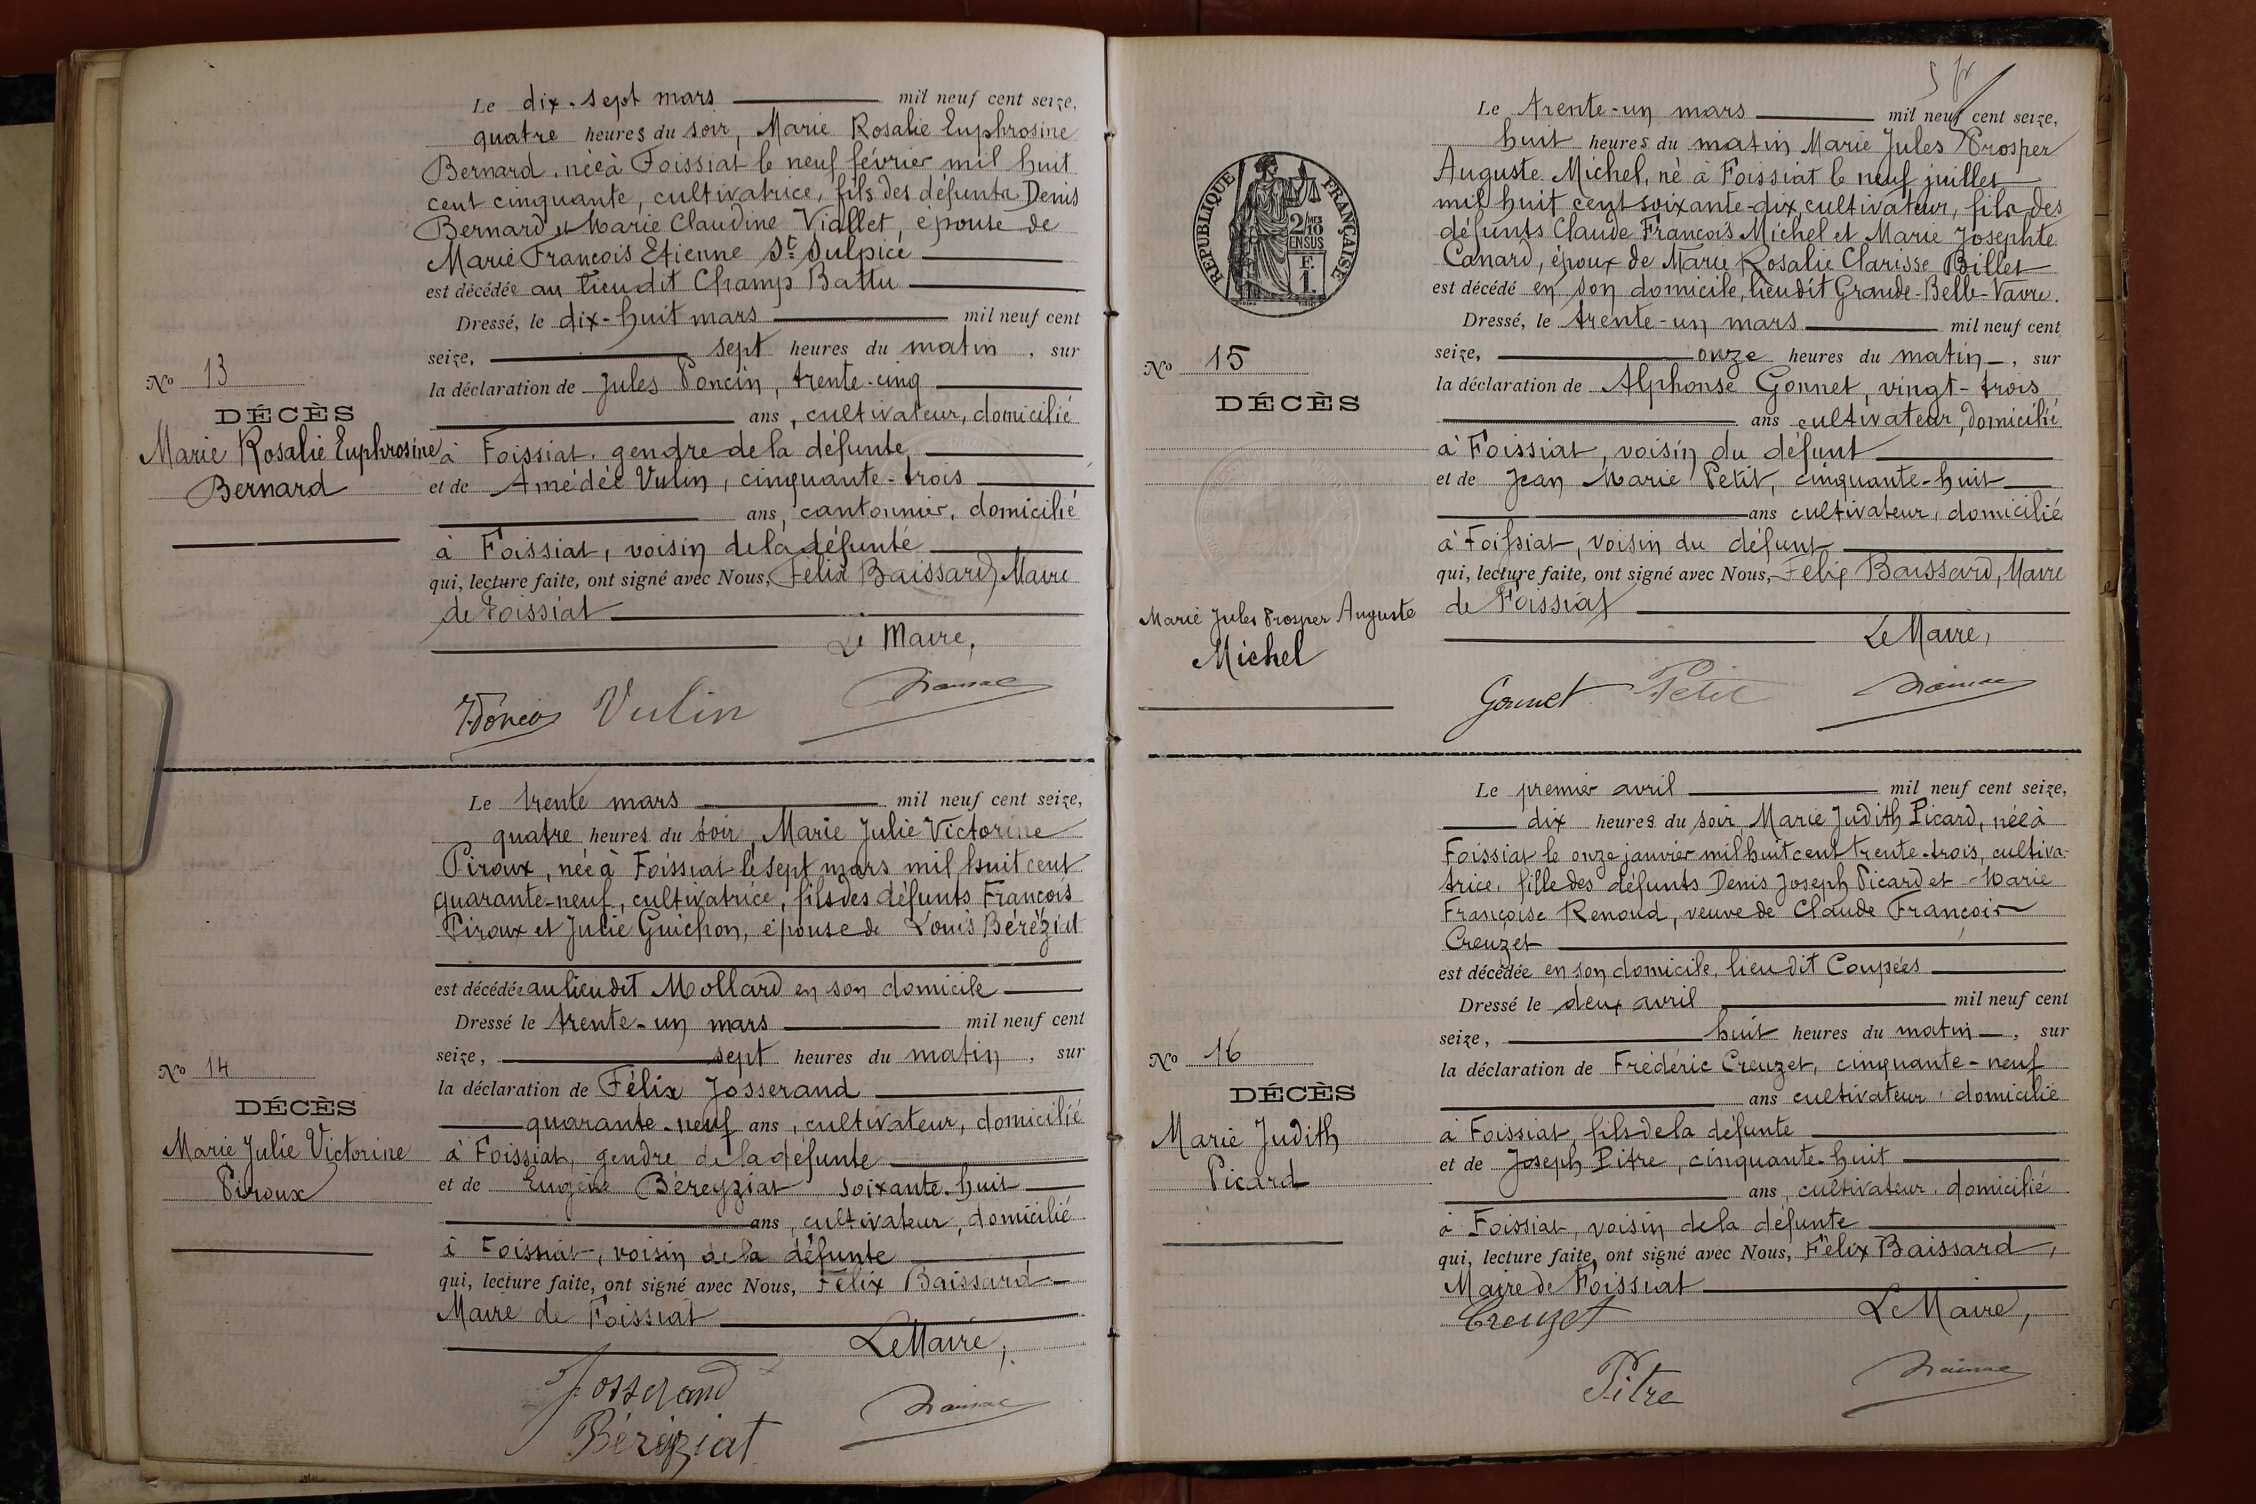 Le dix-sept mars mil neuf cent seize,
quatre heures du soir, Marie Rosalie Euphrosine
Bernard, née à Foissiat le neuf février mil huit
cent cinquante, cultivatrice, fils des défunts Denis
Bernard et Marie Claudine Viallet, épouse de
Marie François Etienne St Sulpice
est décédée au lieu dit Champ Battu
Dressé, le dix-huit mars mil neuf cent
seize, sept heures du matin, sur
la déclaration de Jules Poncin, trente-cinq
ans, cultivateur, domicilié
à Foissiat, gendre de la défunte
et de Amédée Vulin, cinquante-trois
ans, cantonnier, domicilié
à Foissiat, voisin de la défunte
qui, lecture faite, ont signé avec Nous, Félix Baissard, Maire
de Foissiat
Le Maire,
Vulin
No 13
DÉCÈS
Marie Rosalie Euphrosine
Bernard
Le trente mars mil neuf cent seize,
quatre heures du soir, Marie Julie Victorine
Piroux, née à Foissiat le sept mars mil huit cent
quarante-neuf, cultivatrice, fils des défunts François
Piroux et Julie Guichon, épouse de Louis Béréziat
est décédée au lieu dit Mollard en son domicile
Dressé le trente-un mars mil neuf cent
seize, sept heures du matin, sur
la déclaration de Félix Josserand
quarante-neuf ans, cultivateur, domicilié
à Foissiat, gendre de la défunte
et de Eugène Béreyziat soixante-huit
ans, cultivateur, domicilié
à Foissiat, voisin de la défunte
qui, lecture faite, ont signé avec Nous, Félix Baissard
Maire de Foissiat
Le Maire,
Josserand
Béréziat
No 14
DÉCÈS
Marie Julie Victorine
Piroux
RÉPUBLIQUE FRANÇAISE
2/10
EN SUS
F.
1.
Le trente-un mars mil neuf cent seize,
huit heures du matin Marie Jules Prosper
Auguste Michel, né à Foissiat le neuf juillet
mil huit cent soixante-dix, cultivateur, fils des
défunts Claude François Michel et Marie Josephte
Canard, époux de Marie Rosalie Clarisse Billet
est décédé en son domicile, lieu dit Grande-Belle-Vavre.
Dressé, le trente-un mars mil neuf cent
seize, onze heures du matin, sur
la déclaration de Alphonse Gonnet, vingt-trois
ans cultivateur, domicilié
à Foissiat, voisin du défunt
et de Jean Marie Petit, cinquante-huit
ans cultivateur, domicilié
à Foissiat, voisin du défunt
qui, lecture faite, ont signé avec Nous, Félix Baissard, Maire
de Foissiat
Le Maire,
Gonnet Petit
No 15
DÉCÈS
Marie Jules Prosper Auguste
Michel
Le premier avril mil neuf cent seize,
dix heures du soir, Marie Judith Picard, née à
Foissiat le onze janvier mil huit cent trente-trois, cultiva-
trice, fille des défunts Denis Joseph Picard et Marie
Françoise Renoud, veuve de Claude François
Creuzet
est décédée en son domicile, lieu dit Coupées
Dressé le deux avril mil neuf cent
seize, huit heures du matin, sur
la déclaration de Frédéric Creuzet, cinquante-neuf
ans cultivateur, domicilié
à Foissiat, fils de la défunte
et de Joseph Pitre, cinquante-huit
ans, cultivateur, domicilié
à Foissiat, voisin de la défunte
qui, lecture faite, ont signé avec Nous, Félix Baissard,
Maire de Foissiat
Le Maire,
Creuzet
Pitre
No 16
DÉCÈS
Marie Judith
Picard